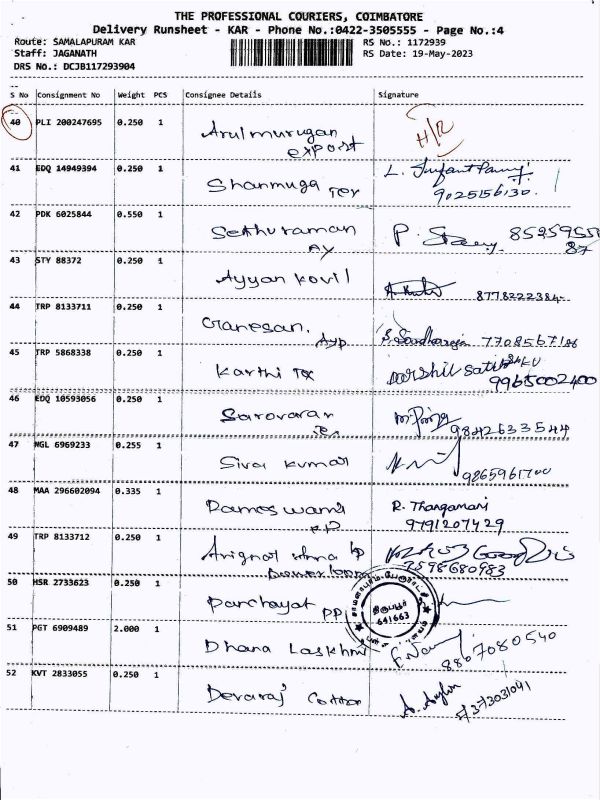 THE PROFESSIONAL COURIERS, COIMBATORE
Delivery Runsheet - KAR - Phone No.:0422-3505555 - Page No.:4
Route: SAMALAPURAM KAR RS No.: 1172939
Staff: JAGANATH RS Date: 19-May-2023
DRS No.: DCJB117293904
S No Consignment No Weight PCS Consignee Details Signature
40 PLI 200247695 0.250 1 Arulmurugan H/R
export
41 EDQ 14949394 0.250 1 Shanmuga Tex L.
9025156130.
42 PDK 6025844 0.550 1 Sethuraman P. 85259550
Ay 87
43 STY 88372 0.250 1 Ayyan Kovil 8778222384
44 TRP 8133711 0.250 1 Ganesan.
Ayp 7708567186
45 TRP 5868338 0.250 1 Karthi Tex
9965002400
46 EDQ 10593056 0.250 1 Sarovarar
9842633544
47 NGL 6969233 0.255 1 Siva Kumar
9865961700
48 MAA 296602094 0.335 1 Rameswami R. Thangamani
9791207429
49 TRP 8133712 0.250 1 Arignar Anna
7598680983
50 MSR 2733623 0.250 1 Panchayat PP
திருப்பூர்
641663
51 PGT 6909489 2.000 1 Dhana Laskhmi
8867080540
52 KVT 2833055 0.250 1 Devaraj Cotton